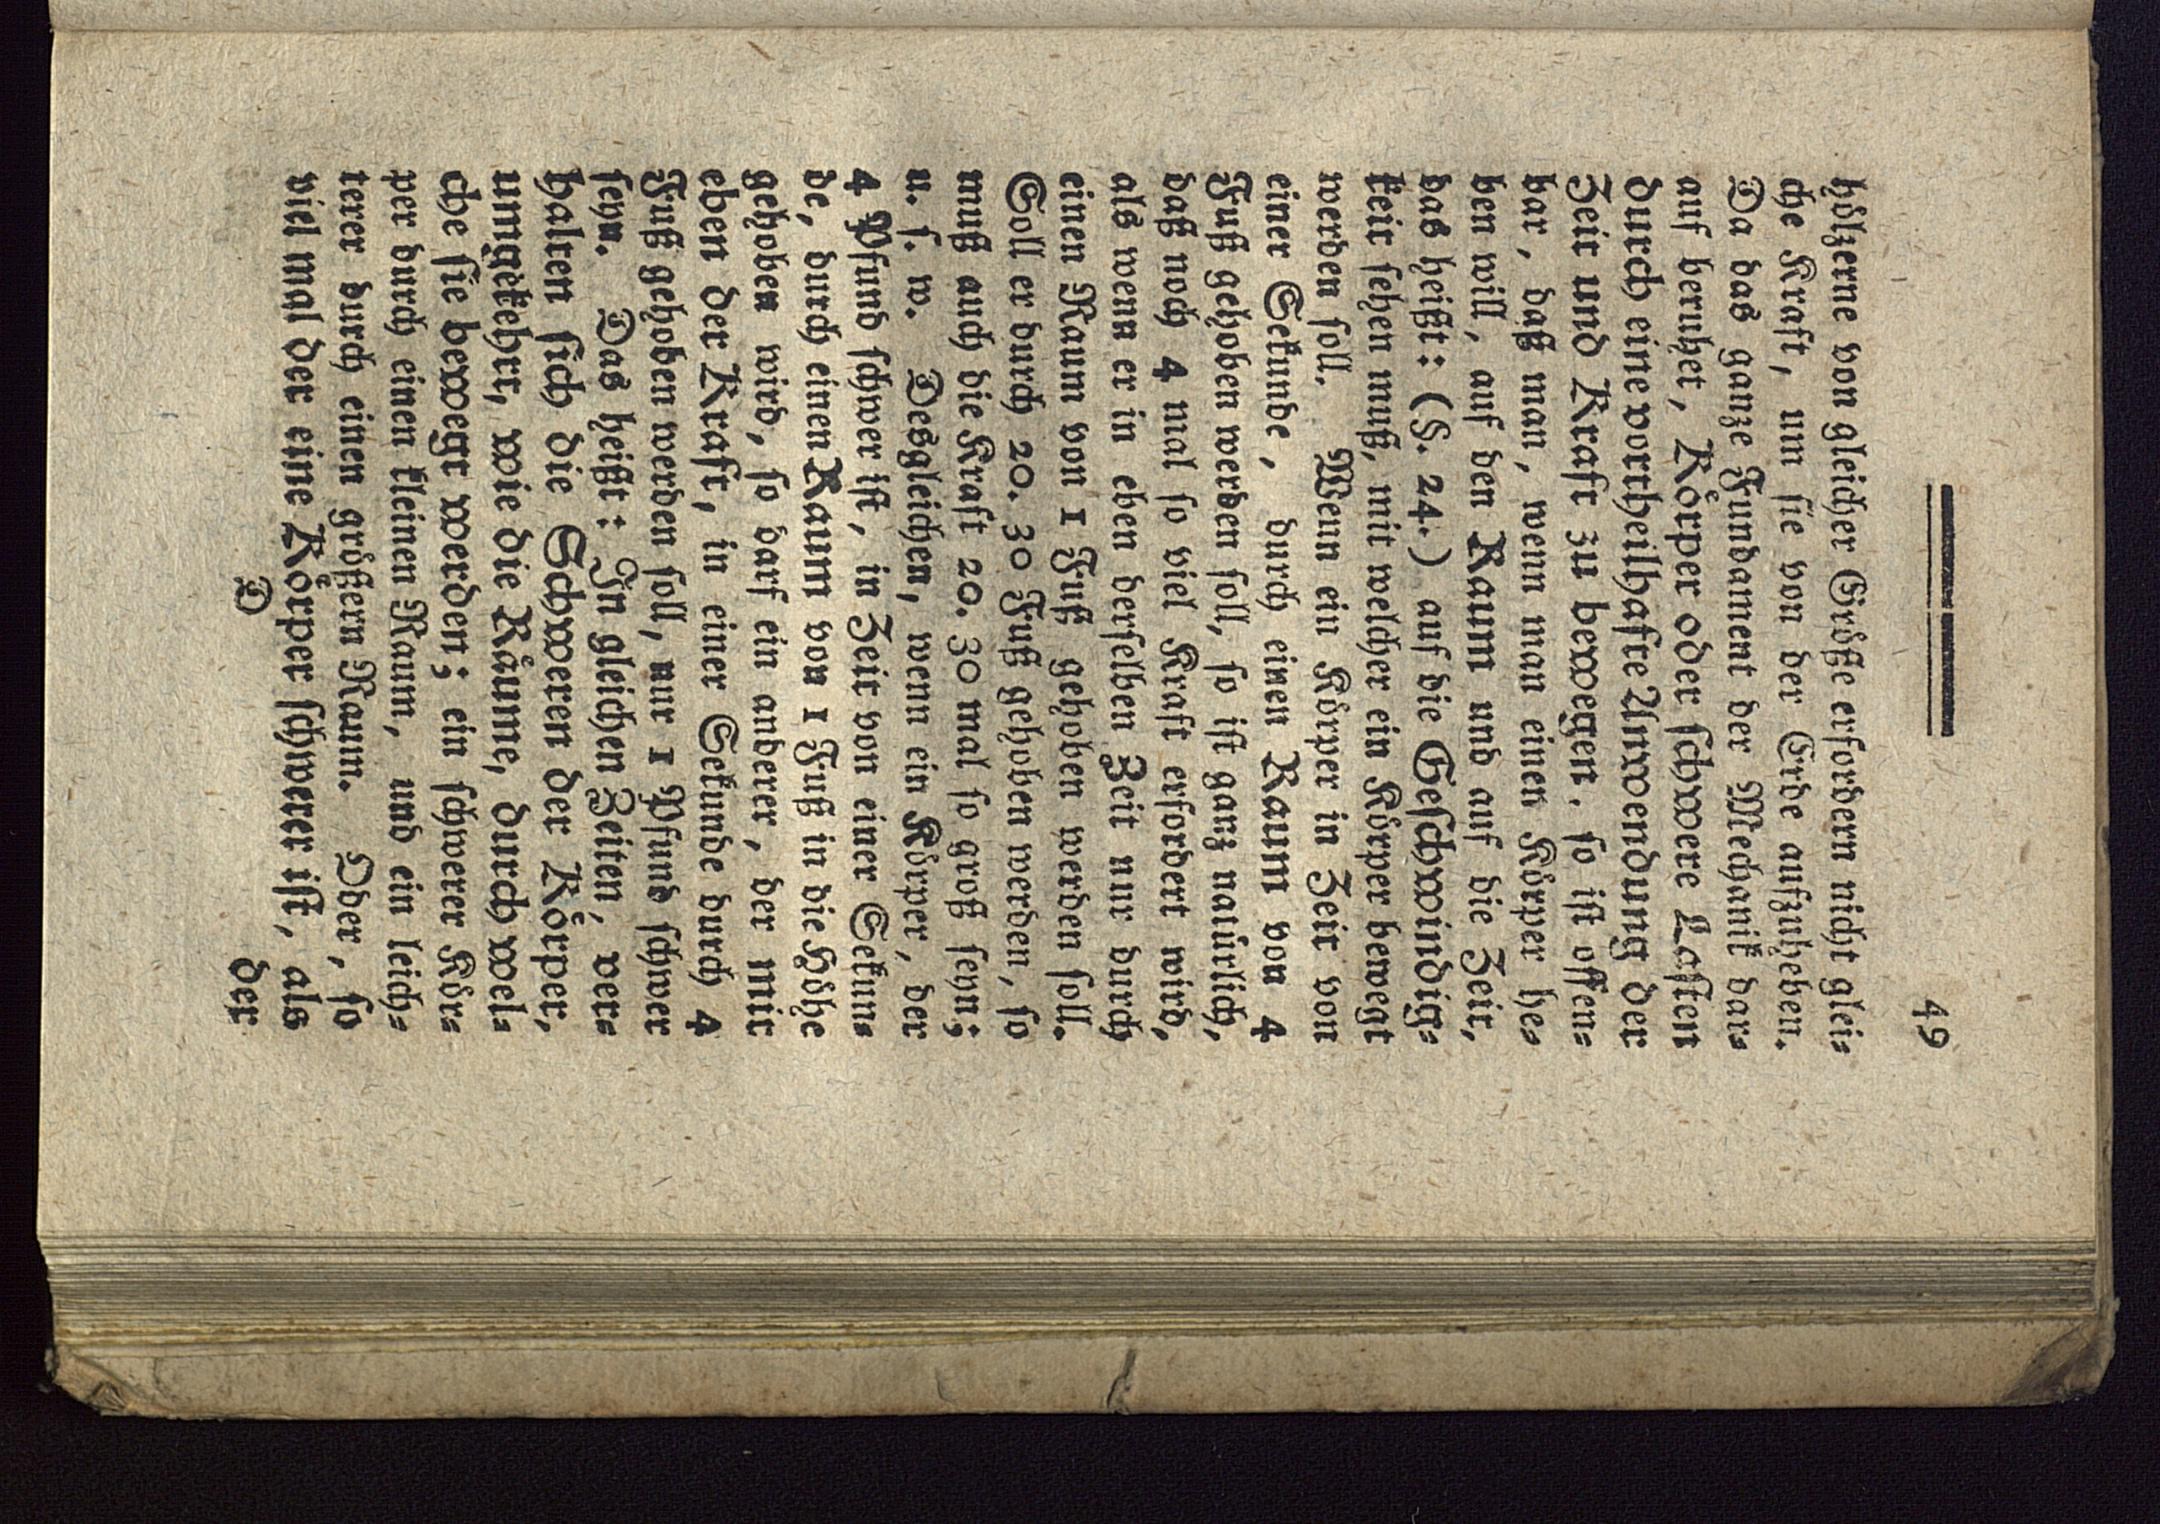 49
hölzerne von gleicher Größe erfordern nicht glei⸗
che Kraft, um sie von der Erde aufzuheben.
Da das ganze Fundament der Mechanik dar⸗
auf beruhet, Körper oder schwere Lasten
durch eine vortheilhafte Anwendung der
Zeit und Kraft zu bewegen, so ist offen⸗
bar, daß man, wenn man einen Körper he⸗
ben will, auf den Raum und auf die Zeit,
das heißt: (§. 24.) auf die Geschwindig⸗
keit sehen muß, mit welcher ein Körper bewegt
werden soll. Wenn ein Körper in Zeit von
einer Sekunde, durch einen Raum von 4
Fuß gehoben werden soll, so ist ganz natürlich,
daß noch 4 mal so viel Kraft erfordert wird,
als wenn er in eben derselben Zeit nur durch
einen Raum von 1 Fuß gehoben werden soll.
Soll er durch 20. 30 Fuß gehoben werden, so
muß auch die Kraft 20. 30 mal so groß seyn;
u. s. w. Desgleichen, wenn ein Körper, der
4 Pfund schwer ist, in Zeit von einer Sekun⸗
de, durch einen Raum von 1 Fuß in die Höhe
gehoben wird, so darf ein anderer, der mit
eben der Kraft, in einer Sekunde durch 4
Fuß gehoben werden soll, nur 1 Pfund schwer
seyn. Das heißt: In gleichen Zeiten, ver⸗
halten sich die Schweren der Körper,
umgekehrt, wie die Räume, durch wel⸗
che sie bewegt werden; ein schwerer Kör⸗
per durch einen kleinen Raum, und ein leich⸗
terer durch einen größern Raum. Oder, so
viel mal der eine Körper schwerer ist, als
D der